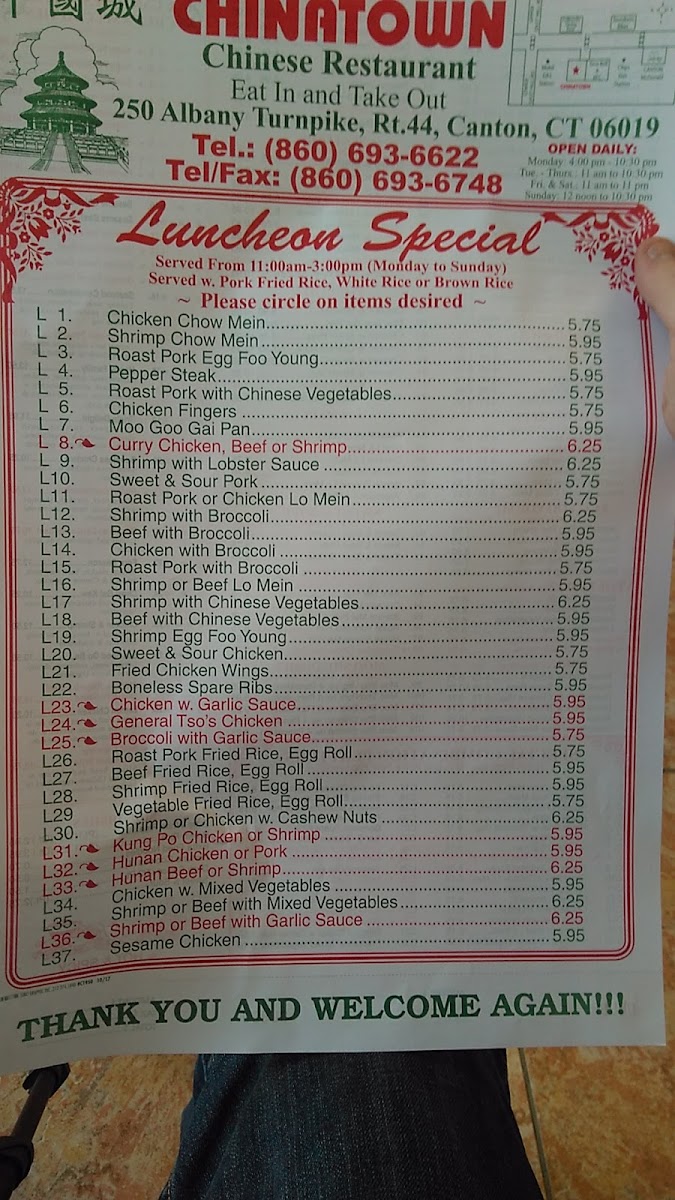 中國城
CHINATOWN
Chinese Restaurant
Eat In and Take Out
250 Albany Turnpike, Rt.44, Canton, CT 06019
Tel.: (860) 693-6622
Tel/Fax: (860) 693-6748
OPEN DAILY:
Monday: 4:00 pm - 10:30 pm
Tue. - Thurs.: 11 am to 10:30 pm
Fri. & Sat.: 11 am to 11 pm
Sunday: 12 noon to 10:30 pm
CHINATOWN
Luncheon Special
Served From 11:00am-3:00pm (Monday to Sunday)
Served w. Pork Fried Rice, White Rice or Brown Rice
~ Please circle on items desired ~
L 1. Chicken Chow Mein 5.75
L 2. Shrimp Chow Mein 5.95
L 3. Roast Pork Egg Foo Young 5.75
L 4. Pepper Steak 5.95
L 5. Roast Pork with Chinese Vegetables 5.75
L 6. Chicken Fingers 5.75
L 7. Moo Goo Gai Pan 5.95
L 8. Curry Chicken, Beef or Shrimp 6.25
L 9. Shrimp with Lobster Sauce 6.25
L10. Sweet & Sour Pork 5.75
L11. Roast Pork or Chicken Lo Mein 5.75
L12. Shrimp with Broccoli 6.25
L13. Beef with Broccoli 5.95
L14. Chicken with Broccoli 5.95
L15. Roast Pork with Broccoli 5.75
L16. Shrimp or Beef Lo Mein 5.95
L17 Shrimp with Chinese Vegetables 6.25
L18. Beef with Chinese Vegetables 5.95
L19. Shrimp Egg Foo Young 5.95
L20. Sweet & Sour Chicken 5.75
L21. Fried Chicken Wings 5.75
L22. Boneless Spare Ribs 5.95
L23. Chicken w. Garlic Sauce 5.95
L24. General Tso's Chicken 5.95
L25. Broccoli with Garlic Sauce 5.75
L26. Roast Pork Fried Rice, Egg Roll 5.75
L27. Beef Fried Rice, Egg Roll 5.95
L28. Shrimp Fried Rice, Egg Roll 5.95
L29 Vegetable Fried Rice, Egg Roll 5.75
L30. Shrimp or Chicken w. Cashew Nuts 6.25
L31. Kung Po Chicken or Shrimp 5.95
L32. Hunan Chicken or Pork 5.95
L33. Hunan Beef or Shrimp 6.25
L34. Chicken w. Mixed Vegetables 5.95
L35. Shrimp or Beef with Mixed Vegetables 6.25
L36. Shrimp or Beef with Garlic Sauce 6.25
L37. Sesame Chicken 5.95
THANK YOU AND WELCOME AGAIN!!!